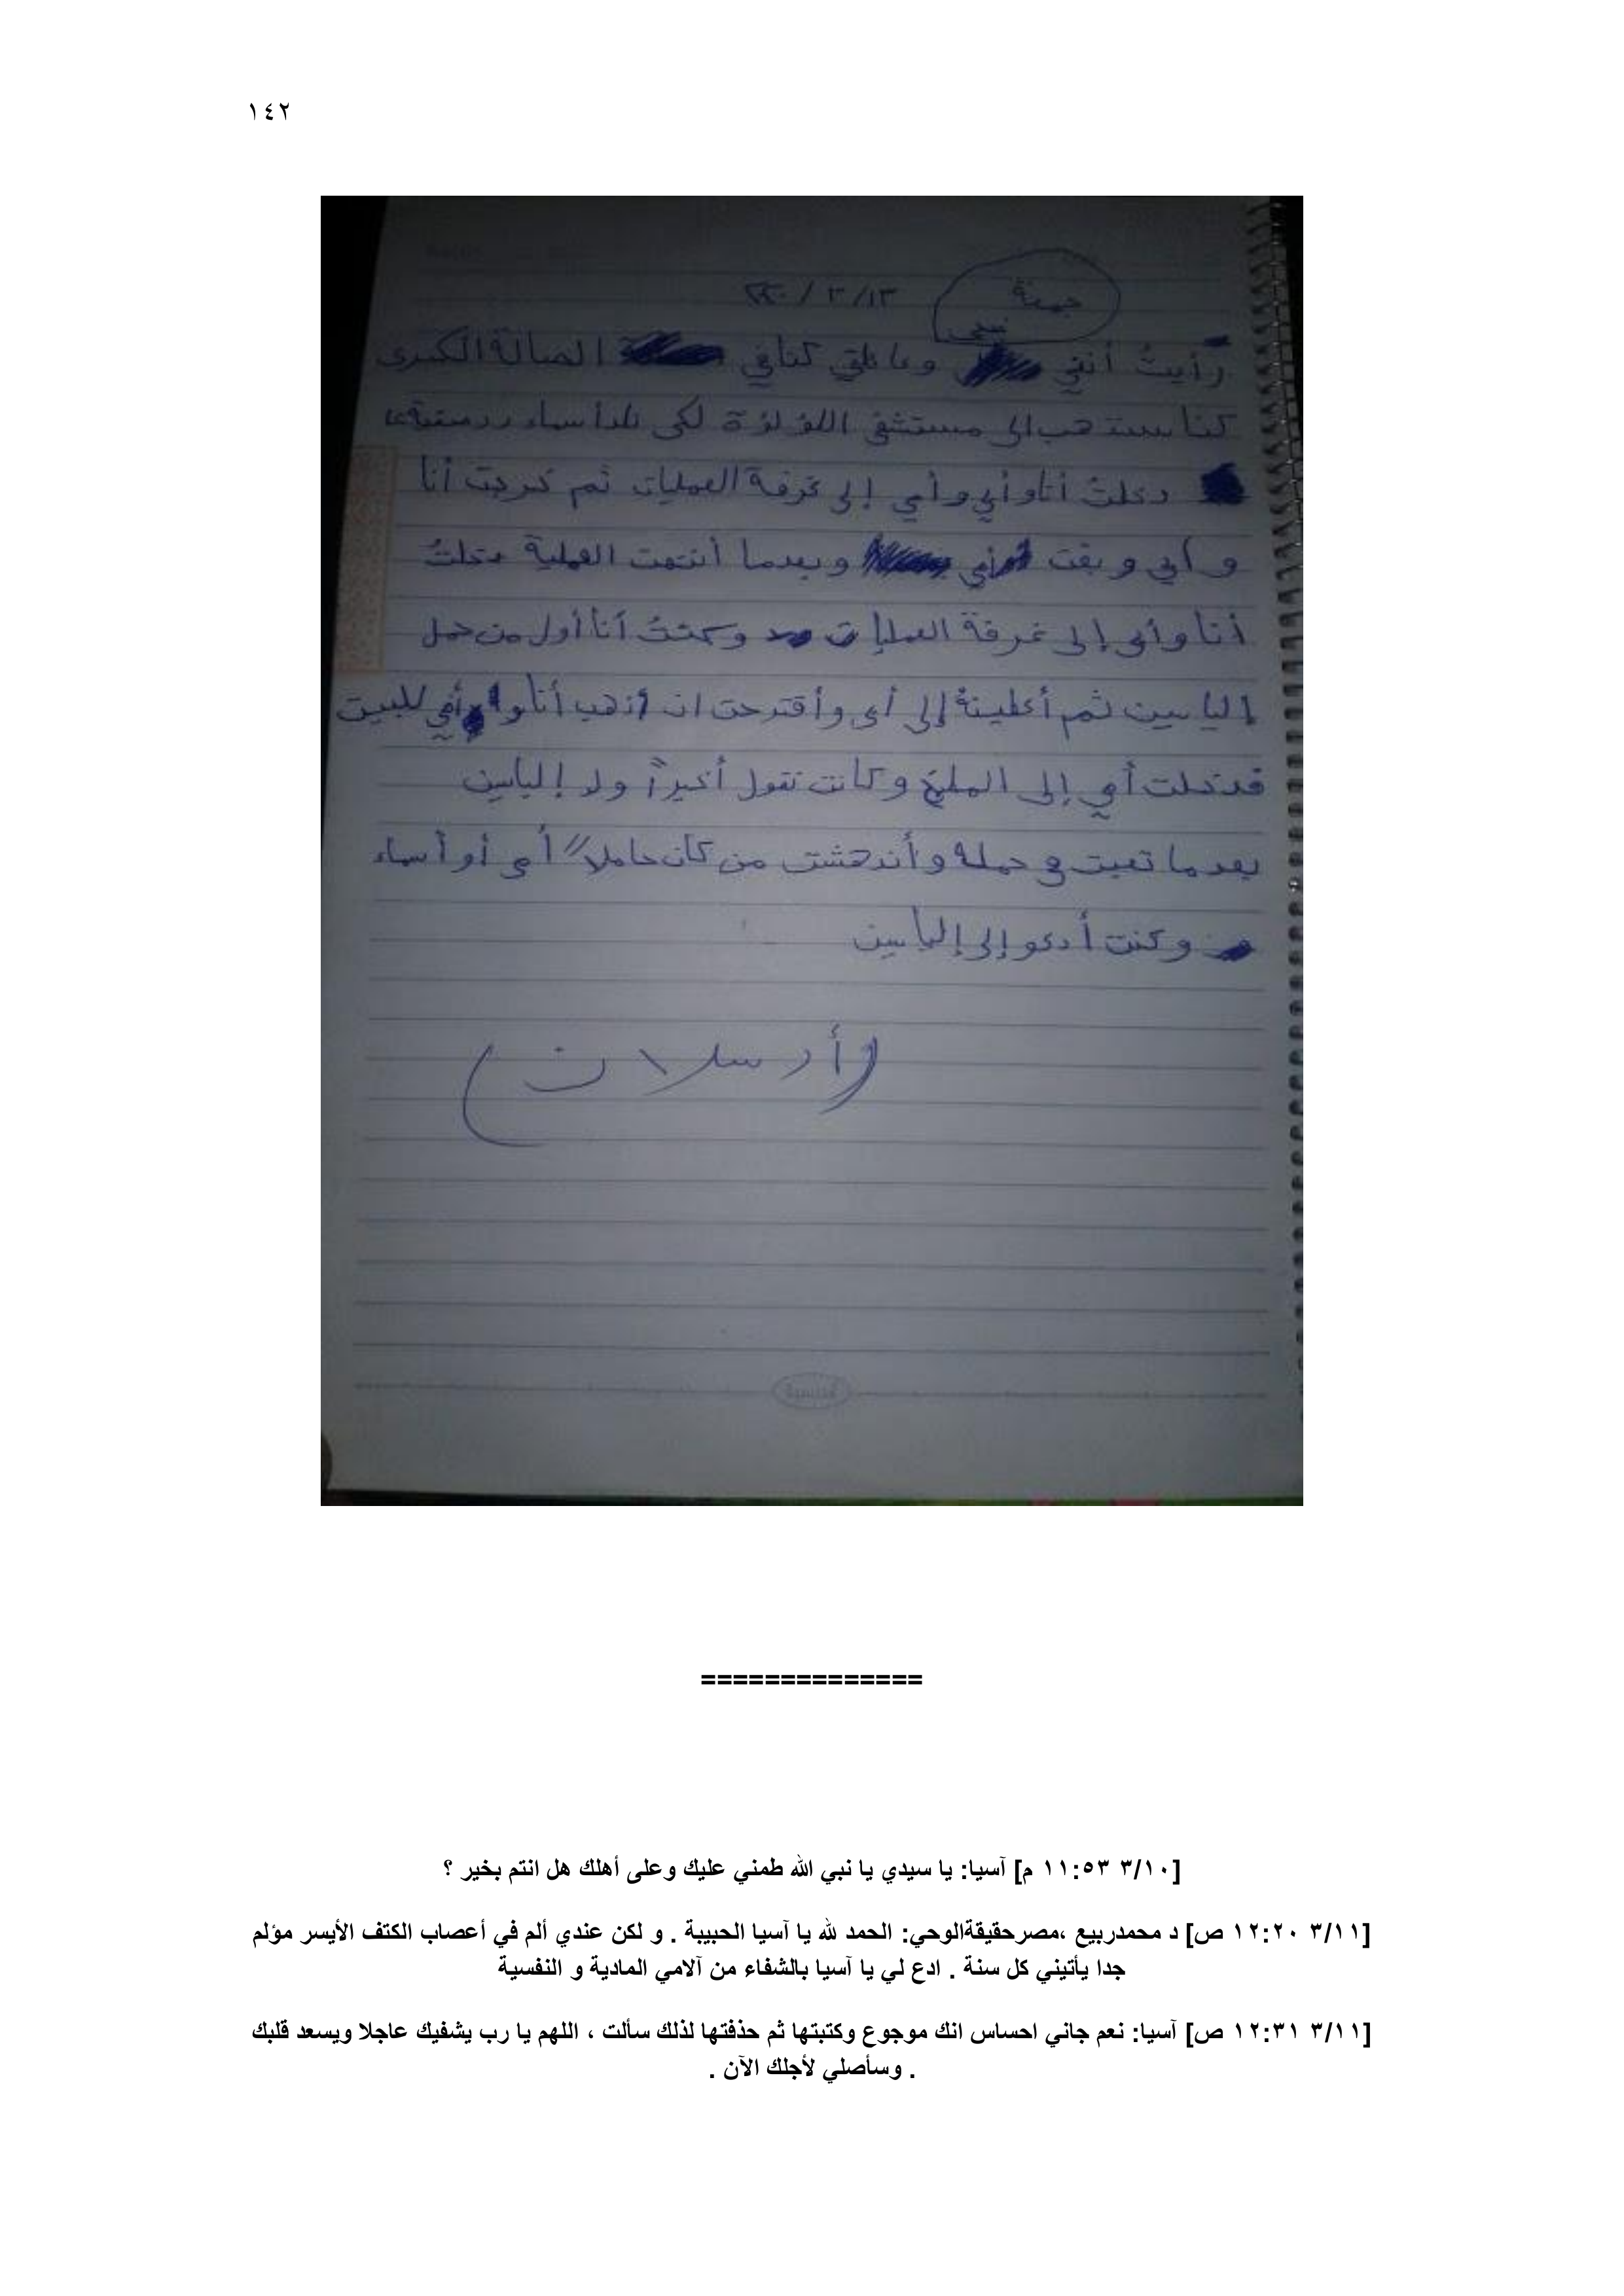 ١٤٢
جمعة ١٣/٣/٢٠٢٠
نفسي
رأيتُ أنني وعائلتي كنا في الصالة الكبرى
كنا سنذهب إلى مستشفى اللؤلؤة لكي تلد أسماء
دخلتُ أنا وأبي وأمي إلى غرفة العمليات ثم خرجت أنا
و أبي و بقت أمي وبعدما أنتهت العملية دخلتُ
أنا وأبي إلى غرفة العمليات وكنتُ أنا أول من حمل
إلياسين ثم أعطيتهُ إلى أبي وأقترحت ان أذهب أنا و أمي للبيت
فدخلت أمي إلى المطبخ وكانت تقول أخيراً ولد إلياسين
بعدما تعبت في حمله وأندهشت من كان حاملاً أمي أو أسماء
وكنت أدعو إلى إلياسين
(أرسلان)
==============
[٣/١٠ ١١:٥٣ م] آسيا: يا سيدي يا نبي الله طمني عليك وعلى أهلك هل انتم بخير ؟
[٣/١١ ١٢:٢٠ ص] د محمدربيع ،مصرحقيقةالوحي: الحمد لله يا آسيا الحبيبة . و لكن عندي ألم في أعصاب الكتف الأيسر مؤلم
جدا يأتيني كل سنة . ادع لي يا آسيا بالشفاء من آلامي المادية و النفسية
[٣/١١ ١٢:٣١ ص] آسيا: نعم جاني احساس انك موجوع وكتبتها ثم حذفتها لذلك سألت ، اللهم يا رب يشفيك عاجلا ويسعد قلبك
. وسأصلي لأجلك الآن .